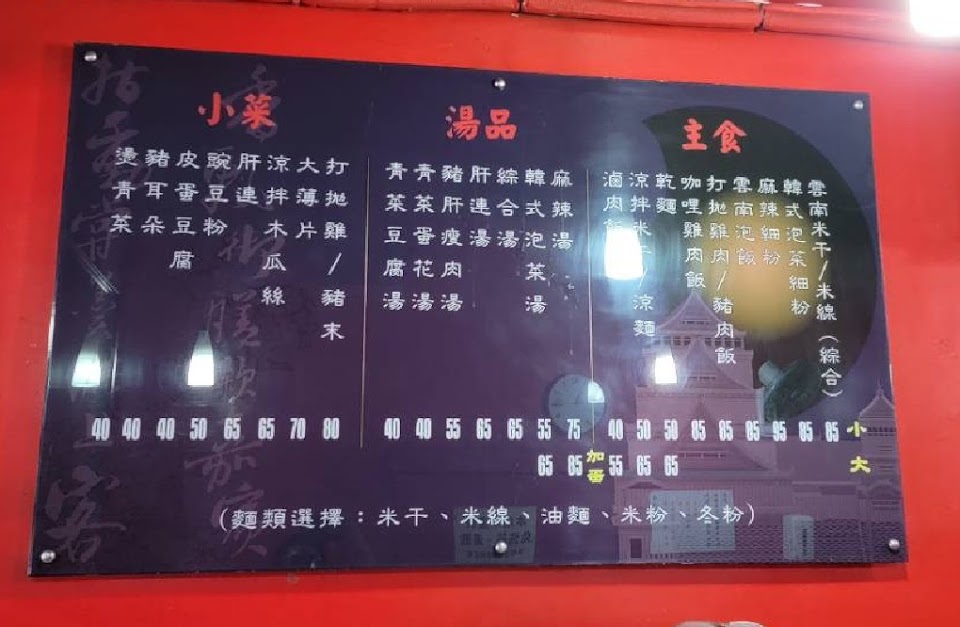 主食
雲南米干/米線(綜合)
韓式泡菜細粉
麻辣細粉
雲南泡飯
打拋雞肉/豬肉飯
咖哩雞肉飯
乾麵
涼拌米干/涼麵
滷肉飯
湯品
麻辣湯
韓式泡菜湯
綜合湯
肝連湯
豬肝瘦肉湯
青菜蛋花湯
青菜豆腐湯
小菜
打拋雞/豬末
大薄片
涼拌木瓜絲
肝連
豌豆粉
皮蛋豆腐
豬耳朵
燙青菜
40 40 40 50 65 65 70 80 40 40 55 65 65 55 75 40 50 50 85 85 85 95 85 85 小
65 85 加蛋 55 65 65 大
(麵類選擇:米干、米線、油麵、米粉、冬粉)